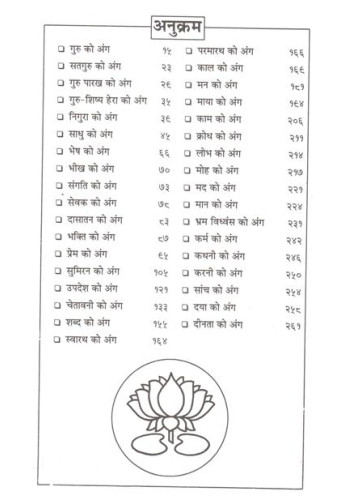 अनुक्रम
गुरु को अंग १५
सतगुरु को अंग २३
गुरु पारख को अंग २९
गुरु-शिष्य हेरा को अंग ३५
निगुरा को अंग ३९
साधु को अंग ४५
भेष को अंग ६६
भीख को अंग ७०
संगति को अंग ७३
सेवक को अंग ७८
दासातन को अंग ८३
भक्ति को अंग ८७
प्रेम को अंग ९५
सुमिरन को अंग १०५
उपदेश को अंग १२१
चेतावनी को अंग १३३
शब्द को अंग १५५
स्वारथ को अंग १६४
परमारथ को अंग १६६
काल को अंग १६९
मन को अंग १८१
माया को अंग १९४
काम को अंग २०६
क्रोध को अंग २११
लोभ को अंग २१४
मोह को अंग २१७
मद को अंग २२१
मान को अंग २२४
भ्रम विध्वंस को अंग २३१
कर्म को अंग २४२
कथनी को अंग २४६
करनी को अंग २५०
सांच को अंग २५४
दया को अंग २५८
दीनता को अंग २६१